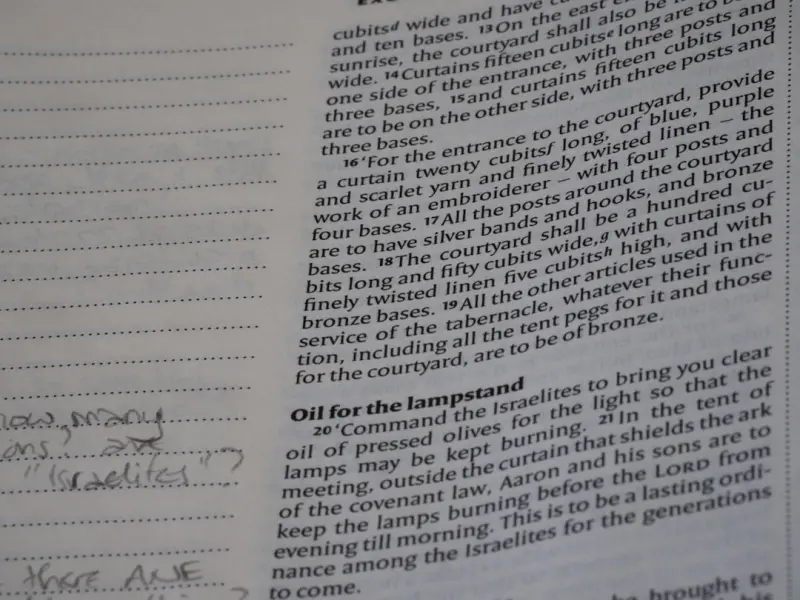 cubitsᵈ wide and have
and ten bases. 13 On the east
sunrise, the courtyard shall also be
wide. 14 Curtains fifteen cubitsᵉ long are to
one side of the entrance, with three posts and
three bases, 15 and curtains fifteen cubits long
are to be on the other side, with three posts and
three bases.
16 ‘For the entrance to the courtyard, provide
a curtain twenty cubitsᶠ long, of blue, purple
and scarlet yarn and finely twisted linen – the
work of an embroiderer – with four posts and
four bases. 17 All the posts around the courtyard
are to have silver bands and hooks, and bronze
bases. 18 The courtyard shall be a hundred cu-
bits long and fifty cubits wide,ᵍ with curtains of
finely twisted linen five cubitsʰ high, and with
bronze bases. 19 All the other articles used in the
service of the tabernacle, whatever their func-
tion, including all the tent pegs for it and those
for the courtyard, are to be of bronze.
Oil for the lampstand
20 ‘Command the Israelites to bring you clear
oil of pressed olives for the light so that the
lamps may be kept burning. 21 In the tent of
meeting, outside the curtain that shields the ark
of the covenant law, Aaron and his sons are to
keep the lamps burning before the LORD from
evening till morning. This is to be a lasting ordi-
nance among the Israelites for the generations
to come.
be brought to
how many
are
"Israelites"?
there ARE